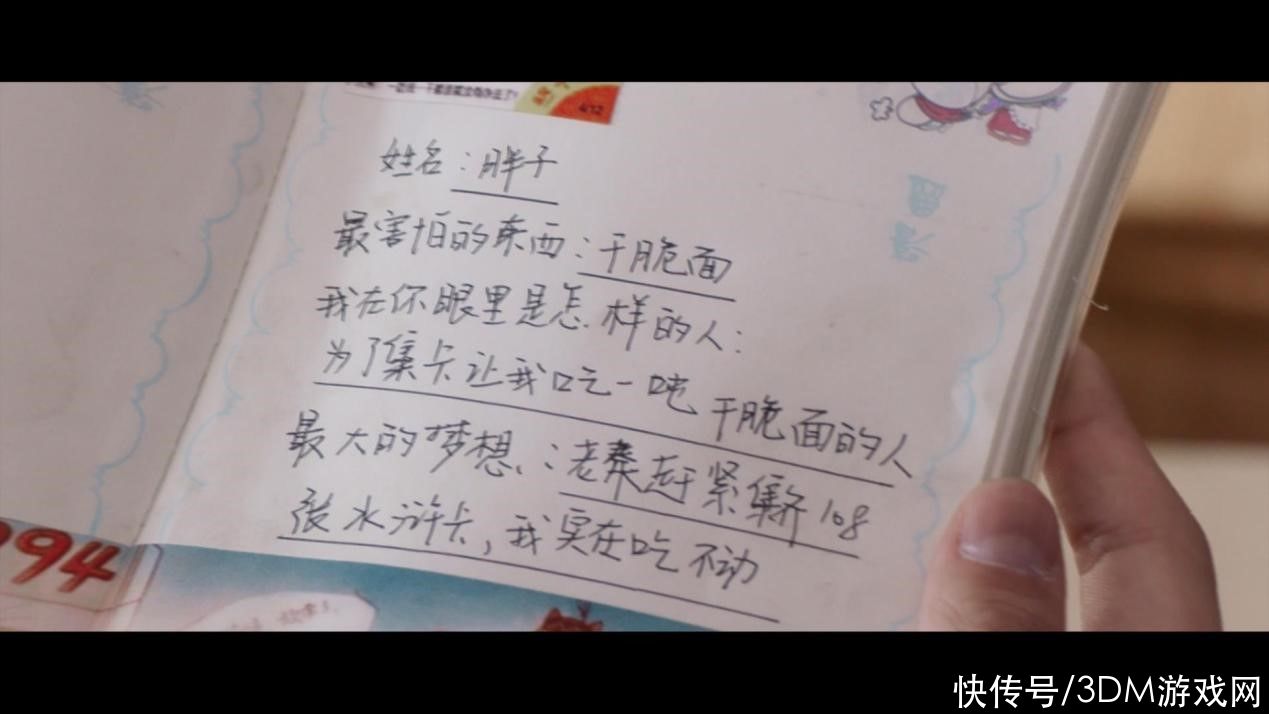 412
姓名：胖子
最害怕的东西：干脆面
我在你眼里是怎样的人：
为了集卡让我吃一吨干脆面的人
最大的梦想：老秦赶紧集齐108
张水浒卡，我实在吃不动
994
快传号/3DM游戏网